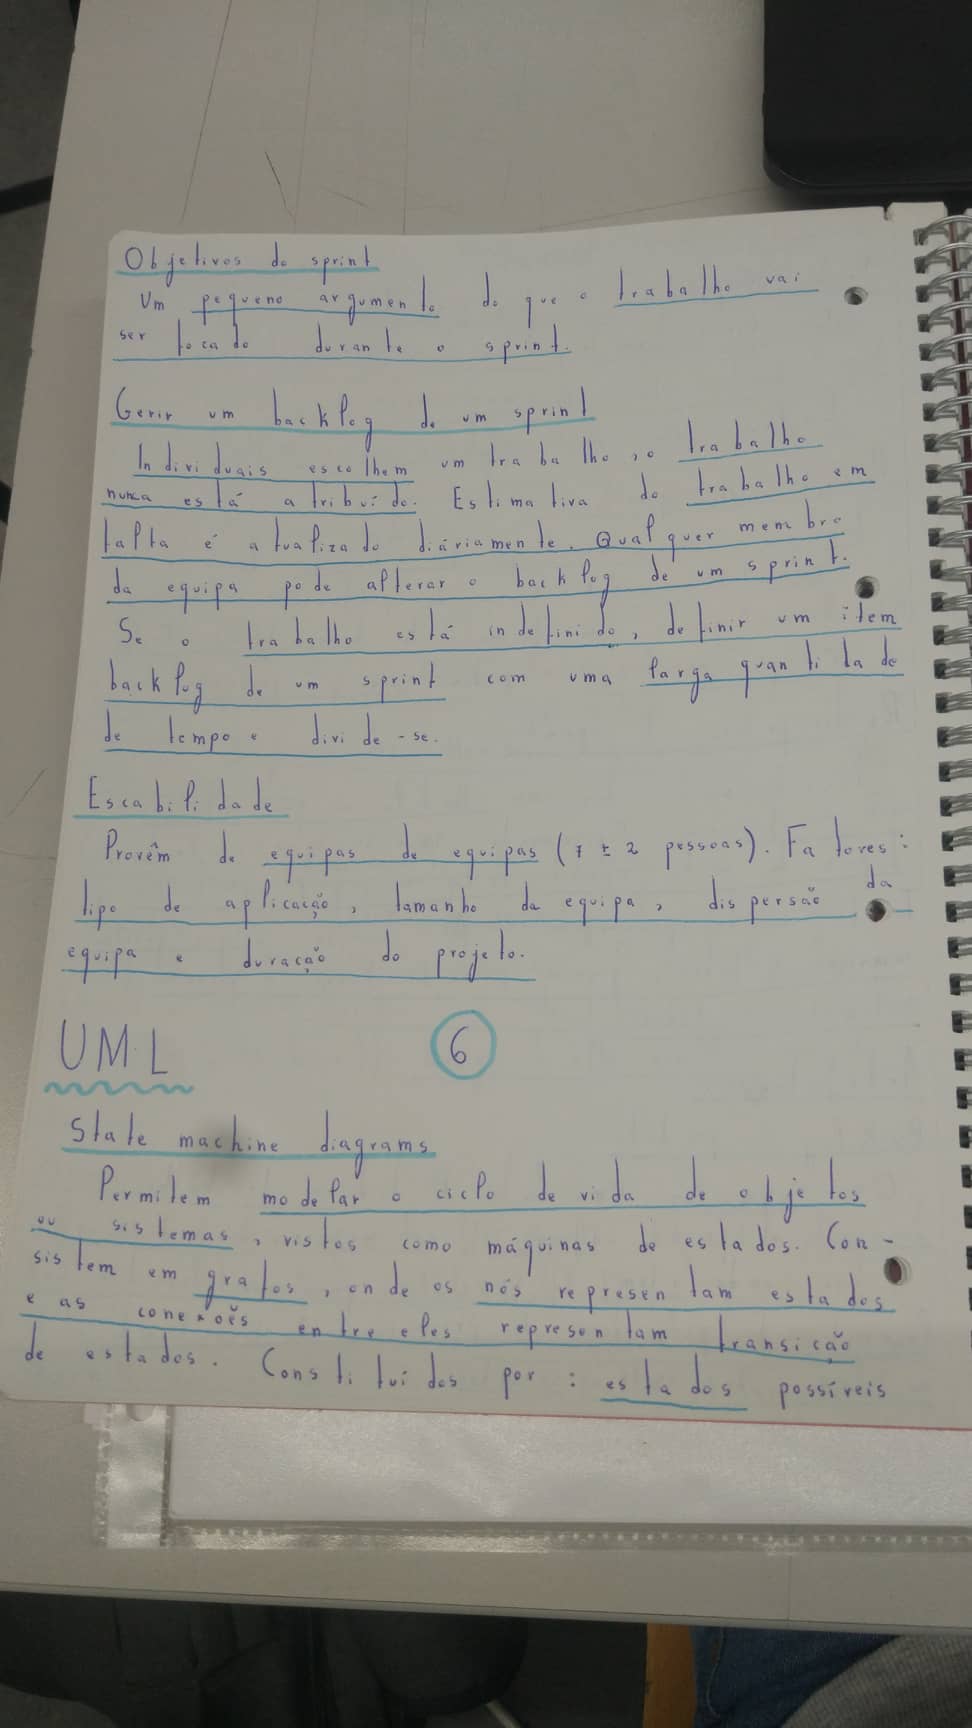 Objetivos do sprint
Um pequeno argumento do que o trabalho vai
ser focado durante o sprint.
Gerir um backlog de um sprint
Individuais escolhem um trabalho, o trabalho
nunca está atribuído. Estimativa do trabalho em
falta é atualizado diáriamente. Qualquer membro
da equipa pode alterar o backlog de um sprint.
Se o trabalho está indefinido, definir um item
backlog de um sprint com uma larga quantidade
de tempo e divide-se.
Escabilidade
Provêm de equipas de equipas (7 ± 2 pessoas). Fatores:
tipo de aplicação, tamanho da equipa, dispersão da
equipa e duração do projeto.
UML 6
State machine diagrams
Permitem modelar o ciclo de vida de objetos
ou sistemas, vistos como máquinas de estados. Con-
sistem em grafos, onde os nós representam estados
e as conexões entre eles representam transição
de estados. Constituídos por: estados possíveis